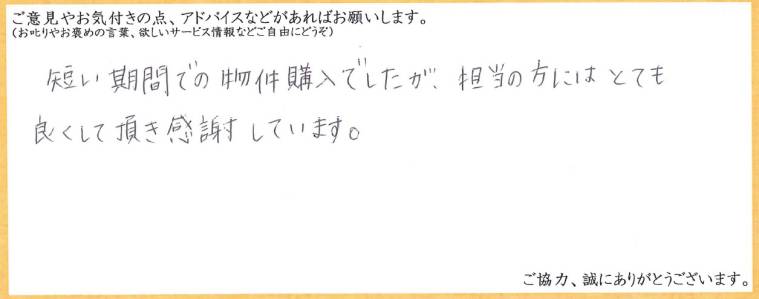 ご意見やお気付きの点、アドバイスなどがあればお願いします。
(お叱りやお褒めの言葉、欲しいサービス情報などご自由にどうぞ)
短い期間での物件購入でしたが、担当の方にはとても
良くして頂き感謝しています。
ご協力、誠にありがとうございます。